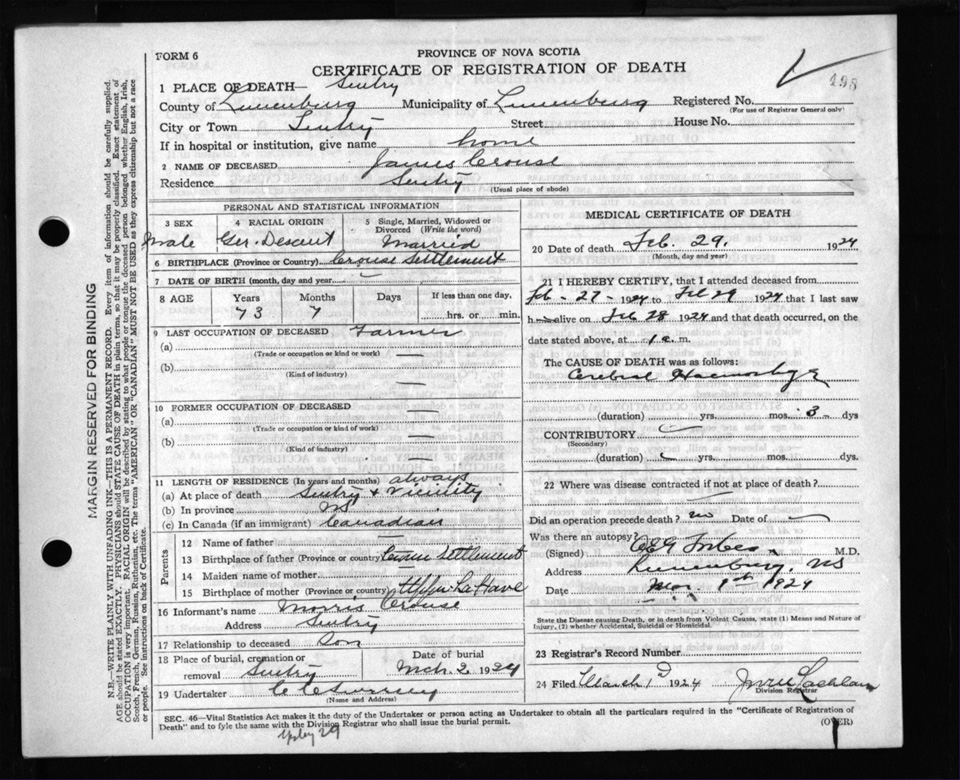 FORM 6
PROVINCE OF NOVA SCOTIA
CERTIFICATE OF REGISTRATION OF DEATH
198
1 PLACE OF DEATH—
County of Lunenburg Municipality of Lunenburg Registered No.
(For use of Registrar General only)
City or Town Street House No.
If in hospital or institution, give name home
2 NAME OF DECEASED James Crouse
Residence
(Usual place of abode)
PERSONAL AND STATISTICAL INFORMATION
3 SEX Male
4 RACIAL ORIGIN Ger. Descent
5 Single, Married, Widowed or Divorced (Write the word) Married
6 BIRTHPLACE (Province or Country) Crouse Settlement
7 DATE OF BIRTH (month, day and year) —
8 AGE Years Months Days If less than one day,
73 7 hrs. or min.
9 LAST OCCUPATION OF DECEASED Farmer
(a)
(Trade or occupation or kind or work) —
(b)
(Kind of industry) —
10 FORMER OCCUPATION OF DECEASED
(a) —
(Trade or occupation or kind of work)
(b) —
(Kind of industry)
11 LENGTH OF RESIDENCE (In years and months) always
(a) At place of death + Vicinity
(b) In province NS
(c) In Canada (if an immigrant) Canadian
Parents
12 Name of father —
13 Birthplace of father (Province or country) Settlement
14 Maiden name of mother —
15 Birthplace of mother (Province or country) Upper LaHave
16 Informant's name Morris Crouse
Address
17 Relationship to deceased Son
18 Place of burial, cremation or removal
Date of burial Mch. 2 1924
19 Undertaker
(Name and Address)
MEDICAL CERTIFICATE OF DEATH
20 Date of death Feb. 29. 1924
(Month, day and year)
21 I HEREBY CERTIFY, that I attended deceased from
Feb - 27 - 1924 to Feb 29 1924 that I last saw
h alive on Feb 28 1924 and that death occurred, on the
date stated above, at 1 a. m.
The CAUSE OF DEATH was as follows:
Cerebral Haemorhage
(duration) yrs. mos. 3 dys
CONTRIBUTORY
(Secondary)
(duration) yrs. mos. dys.
22 Where was disease contracted if not at place of death?
Did an operation precede death? no Date of
Was there an autopsy?
(Signed) Forbes M.D.
Address Lunenburg, NS
Date 1st 1924
State the Disease causing Death, or in death from Violent Causes, state (1) Means and Nature of
Injury, (2) whether Accidental, Suicidal or Homicidal.
23 Registrar's Record Number
24 Filed March 1 1924
Division Registrar
SEC. 46—Vital Statistics Act makes it the duty of the Undertaker or person acting as Undertaker to obtain all the particulars required in the "Certificate of Registration of
Death" and to fyle the same with the Division Registrar who shall issue the burial permit.
(OVER)
MARGIN RESERVED FOR BINDING
N.B.—WRITE PLAINLY WITH UNFADING INK—THIS IS A PERMANENT RECORD. Every item of information should be carefully supplied.
AGE should be stated EXACTLY. PHYSICIANS should STATE CAUSE OF DEATH in plain terms, so that it may be properly classified. Exact statement of
OCCUPATION is very important. RACIAL ORIGIN will be described by stating to what people or tongue the deceased person belonged whether English, Irish,
Scotch, French, German, Russian, Ruthenian, etc. The terms "AMERICAN" OR "CANADIAN" MUST NOT BE USED as they express citizenship but not a race
or people. See instructions on back of Certificate.